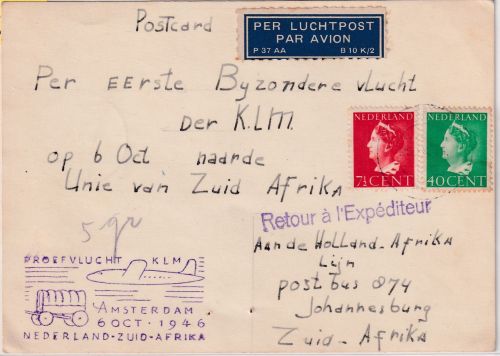 Postcard
PER LUCHTPOST
PAR AVION
P 37 AA B 10 K/2
Per EErste Byzondere vlucht
Der K.L.M.
op 6 Oct naarde
Unie van Zuid Afrika
NEDERLAND
7½ CENT
NEDERLAND
40 CENT
5 gr
Retour à l'Expéditeur
Aan de Holland-Afrika
Lijn
postbus 874
Johannesburg
Zuid-Afrika
PROEFVLUCHT KLM
AMSTERDAM
6 OCT · 1946
NEDERLAND-ZUID-AFRIKA